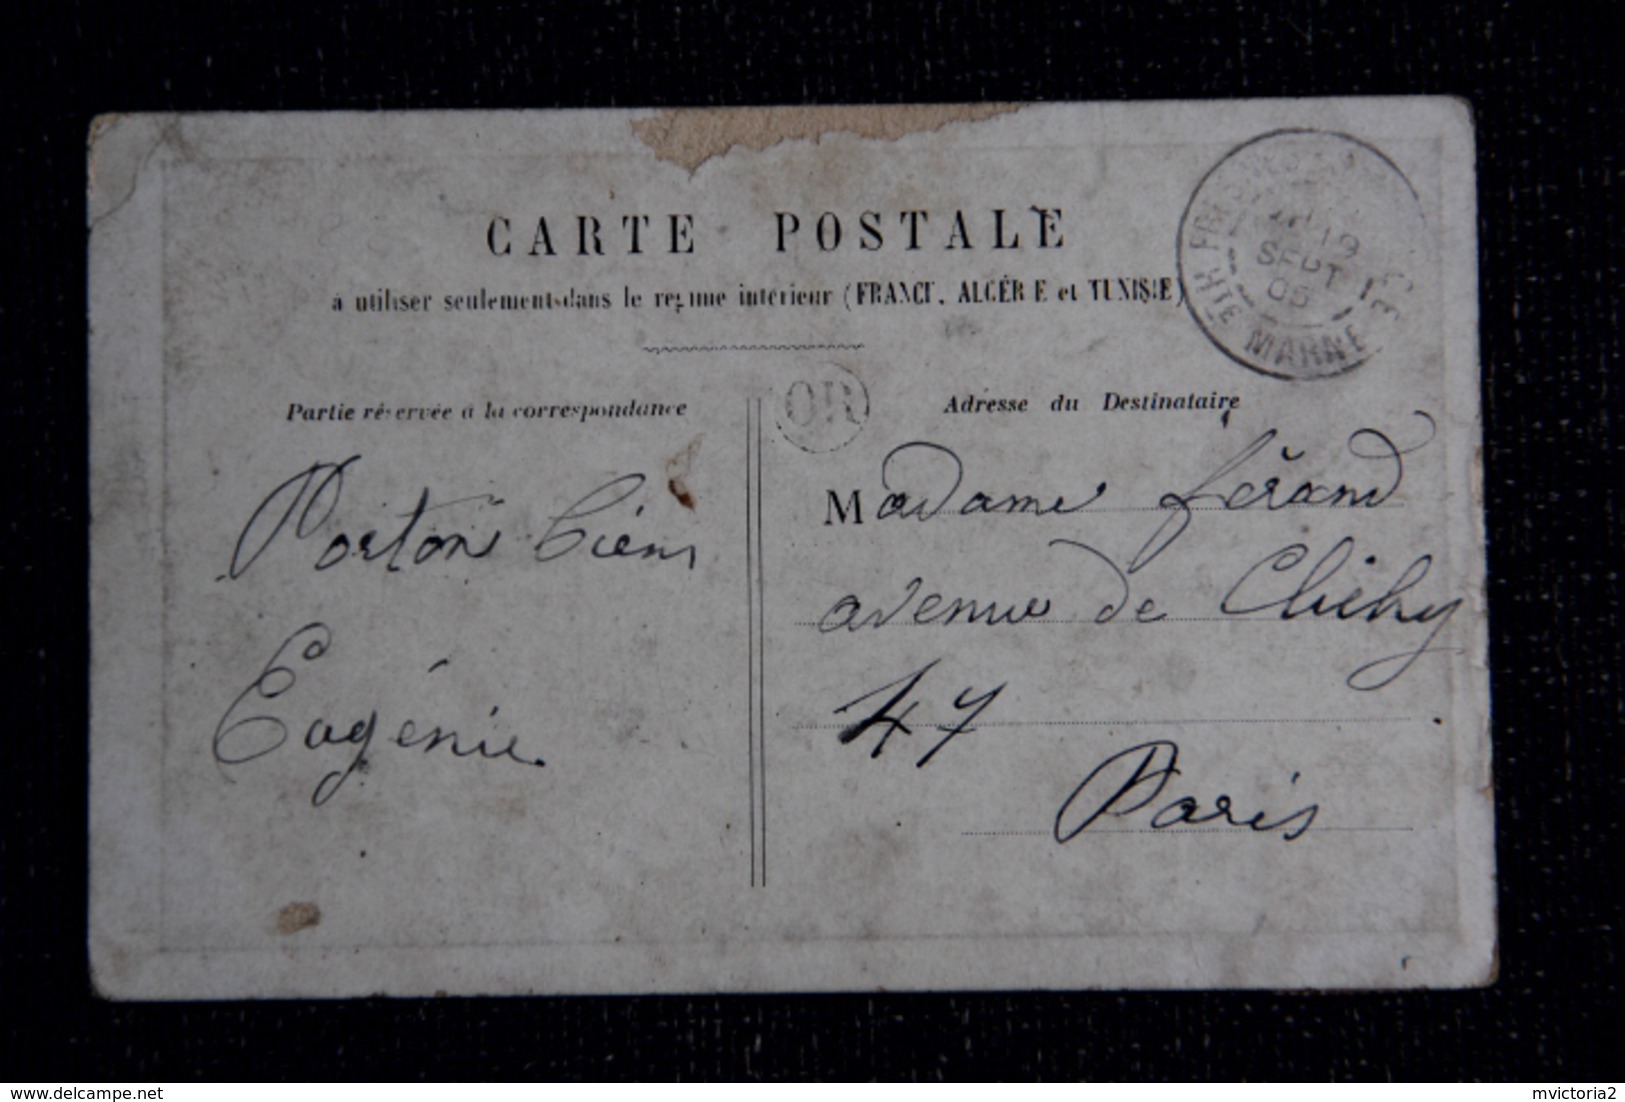 CARTE POSTALE
à utiliser seulement dans le régime intérieur (FRANCE, ALGÉRIE et TUNISIE)
19
SEPT
05
HTE MARNE
OR
Partie réservée à la correspondance
Adresse du Destinataire
Porton bien
Eugénie
Madame férand
avenue de Clichy
47
Paris
delcampe.net
mvictoria2